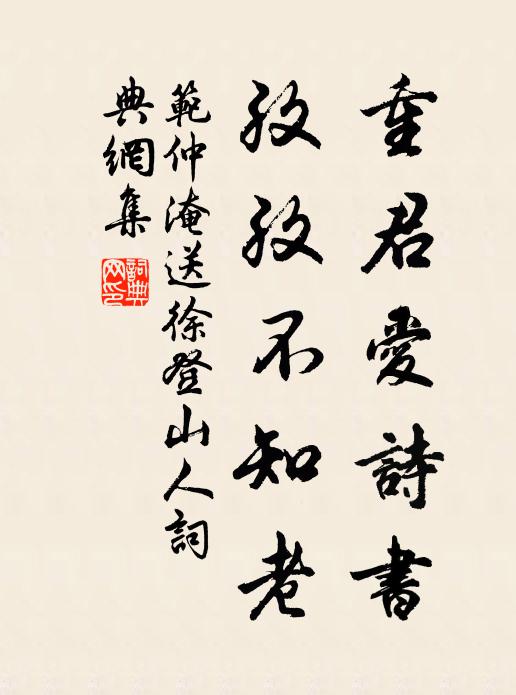 重君愛詩書
孜孜不知老
範仲淹送徐登山人詞
典網集
詞典
网印